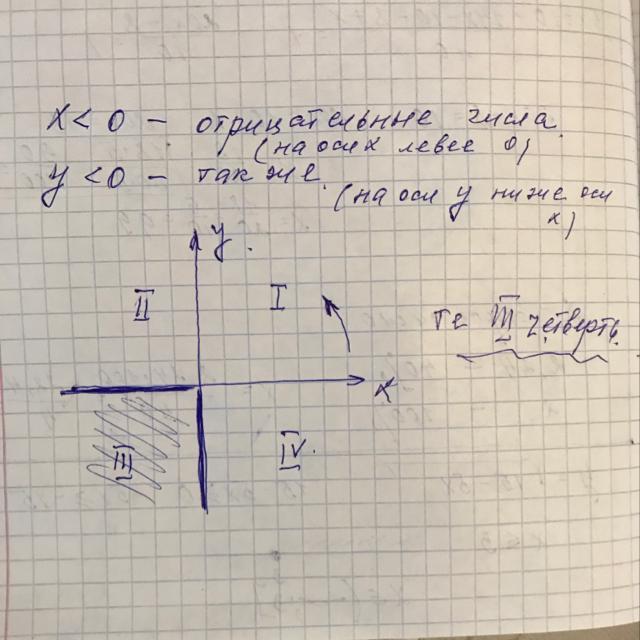 x < 0 – отрицательные числа.
(на оси x левее 0)
y < 0 – так же.
(на оси y ниже оси
x)
y.
II I
те III четверть.
x
III IV.